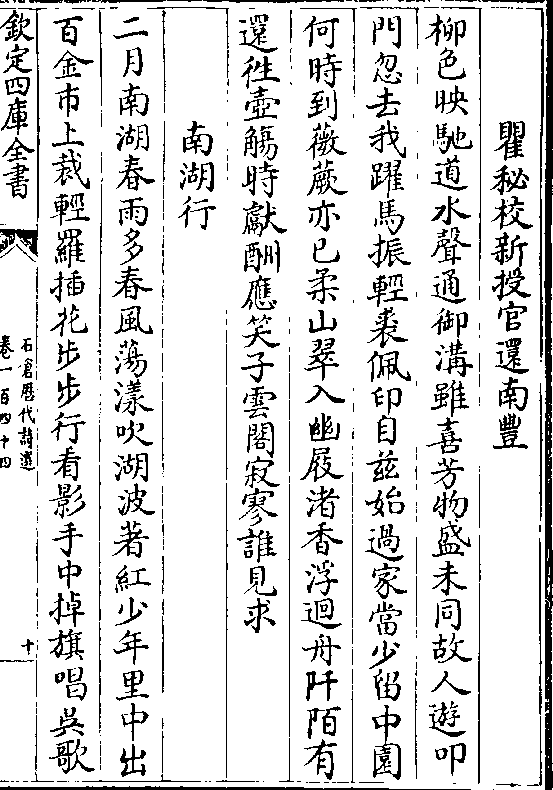 瞿秘校新授官還南豐
柳色映馳道水聲通御溝雖喜芳物盛未同故人遊叩
門忽去我躍馬振輕裘佩印自兹始過家當少留中園
何時到薇蕨亦已柔山翠入幽屐渚香浮迴舟阡陌有
還往壺觴時獻酬應笑子雲閣寂寥誰見求
南湖行
二月南湖春雨多春風蕩漾吹湖波著紅少年里中出
百金市上裁輕羅插花步步行看影手中掉旗唱吳歌
欽定四庫全書
石倉歷代詩選
卷一百四十四
十